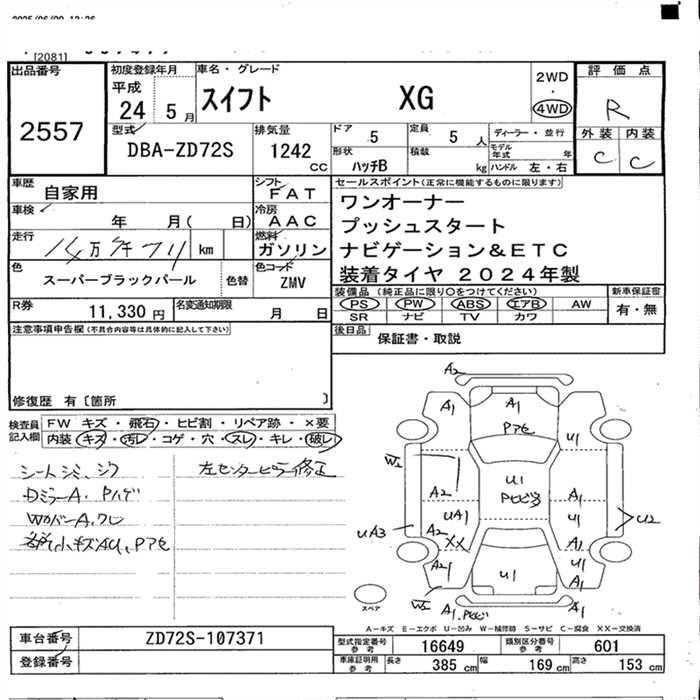 [2081]
出品番号
2557
初度登録年月
平成
24 5月
車名・グレード
スイフト XG
2WD
・
4WD
評価点
R
外装 内装
C C
型式
DBA-ZD72S
排気量
1242
CC
ドア 5
定員 5 人
形状
ハッチB
積載
kg
ディーラー・並行
モデル年式 年
ハンドル 左・右
車歴
自家用
シフト
FAT
車検
年 月( 日)
冷房
AAC
走行
km
燃料
ガソリン
色
スーパーブラックパール
色替
色コード
ZMV
R券
11,330 円
名変通知期限
月 日
セールスポイント(正常に機能するものに限ります)
ワンオーナー
プッシュスタート
ナビゲーション&ETC
装着タイヤ 2024年製
装備品(純正品に限り○をつけてください)
PS PW ABS エアB AW
SR ナビ TV カワ
新車保証書
有・無
後日品
保証書・取説
注意事項申告欄(不具合内容等は具体的に記入して下さい)
修復歴 有〔箇所 〕
検査員記入欄
FW キズ・飛石・ヒビ割・リペア跡・×要
内装 キズ・汚レ・コゲ・穴・スレ・キレ・破レ
シートシミ、シワ
DミラーA、Pハゲ
左センターピラー修正
A2
A1
A1
Pアセ
U1
W2
A2
U1
A1
UA1
U1
UA3
A2
XX
A1
U2
A2
U1
U1
A1
A1
スペア
A－キズ E－エクボ U－凹み W－補修跡 S－サビ C－腐食 XX－交換済
車台番号
ZD72S-107371
登録番号
型式指定番号参考
16649
類別区分番号参考
601
車庫証明用参考
長さ 385 cm
幅 169 cm
高さ 153 cm